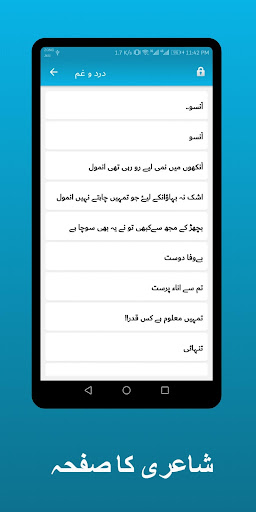 1.7 K/s 11:42 PM
درد و غم
آنسو..
آنسو
آنکھوں میں نمی لیے رو رہی تھی انمول
اشک نہ بہاؤانکے لیۓ جو تمہیں چاہتے نہیں انمول
بچھڑ کے مجھ سےکبھی تو نے یہ بھی سوچا ہے
بےوفا دوست
تم سے اناء پرست
تمہیں معلوم ہے کس قدر!!
تنہائی
شاعری کا صفحہ